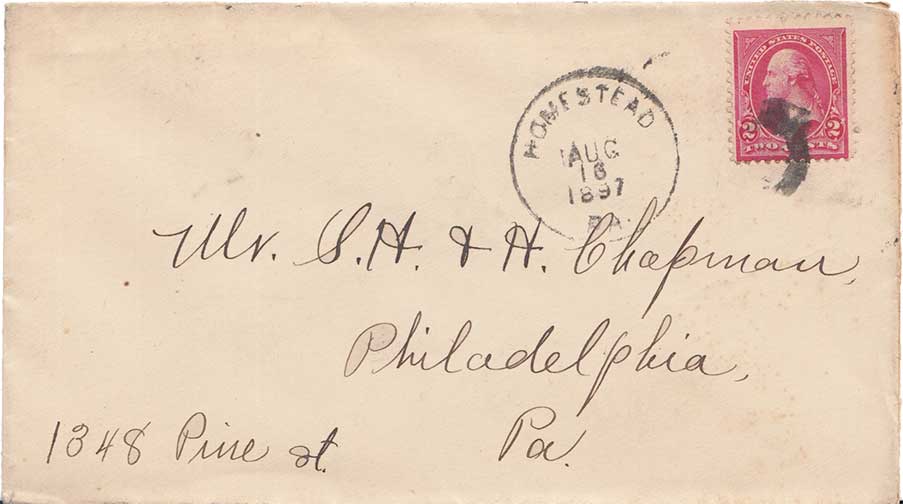 UNITED STATES POSTAGE
2 2
TWO CENTS
HOMESTEAD
AUG
16
1897
PA.
Mr. S. H. & H. Chapman,
Philadelphia,
Pa.
1348 Pine st.